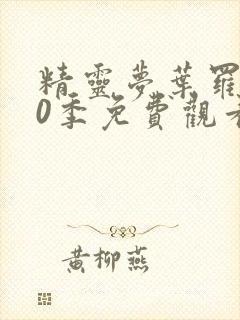 精靈夢葉羅
0季免費觀
黃柳燕